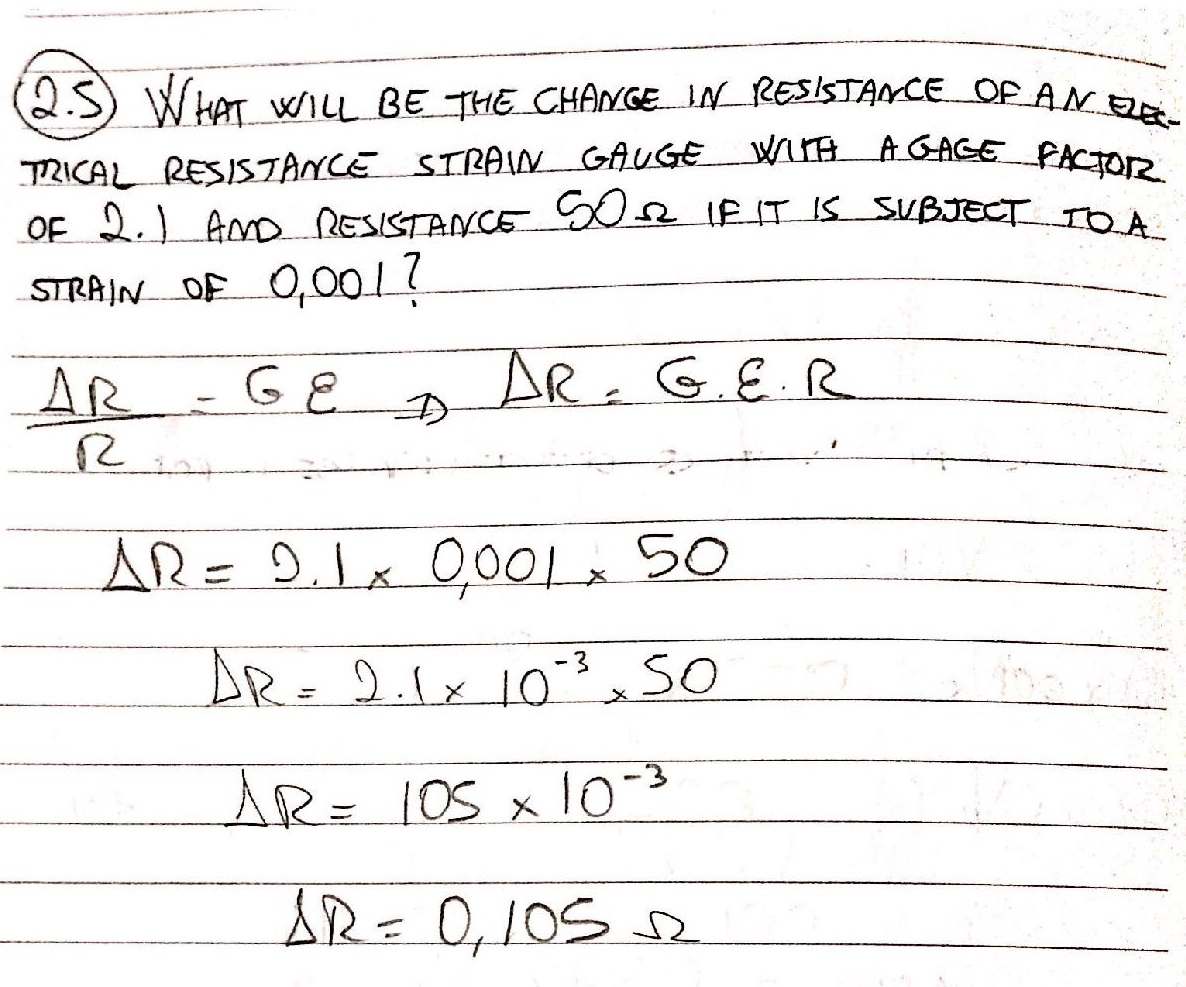 2.5 WHAT WILL BE THE CHANGE IN RESISTANCE OF AN ELEC-
TRICAL RESISTANCE STRAIN GAUGE WITH A GAGE FACTOR
OF 2.1 AND RESISTANCE 50Ω IF IT IS SUBJECT TO A
STRAIN OF 0,001?
ΔR/R = G ε ⇒ ΔR = G.ε.R
ΔR = 2.1 x 0,001 x 50
ΔR = 2.1 x 10⁻³ x 50
ΔR = 105 x 10⁻³
ΔR = 0,105 Ω